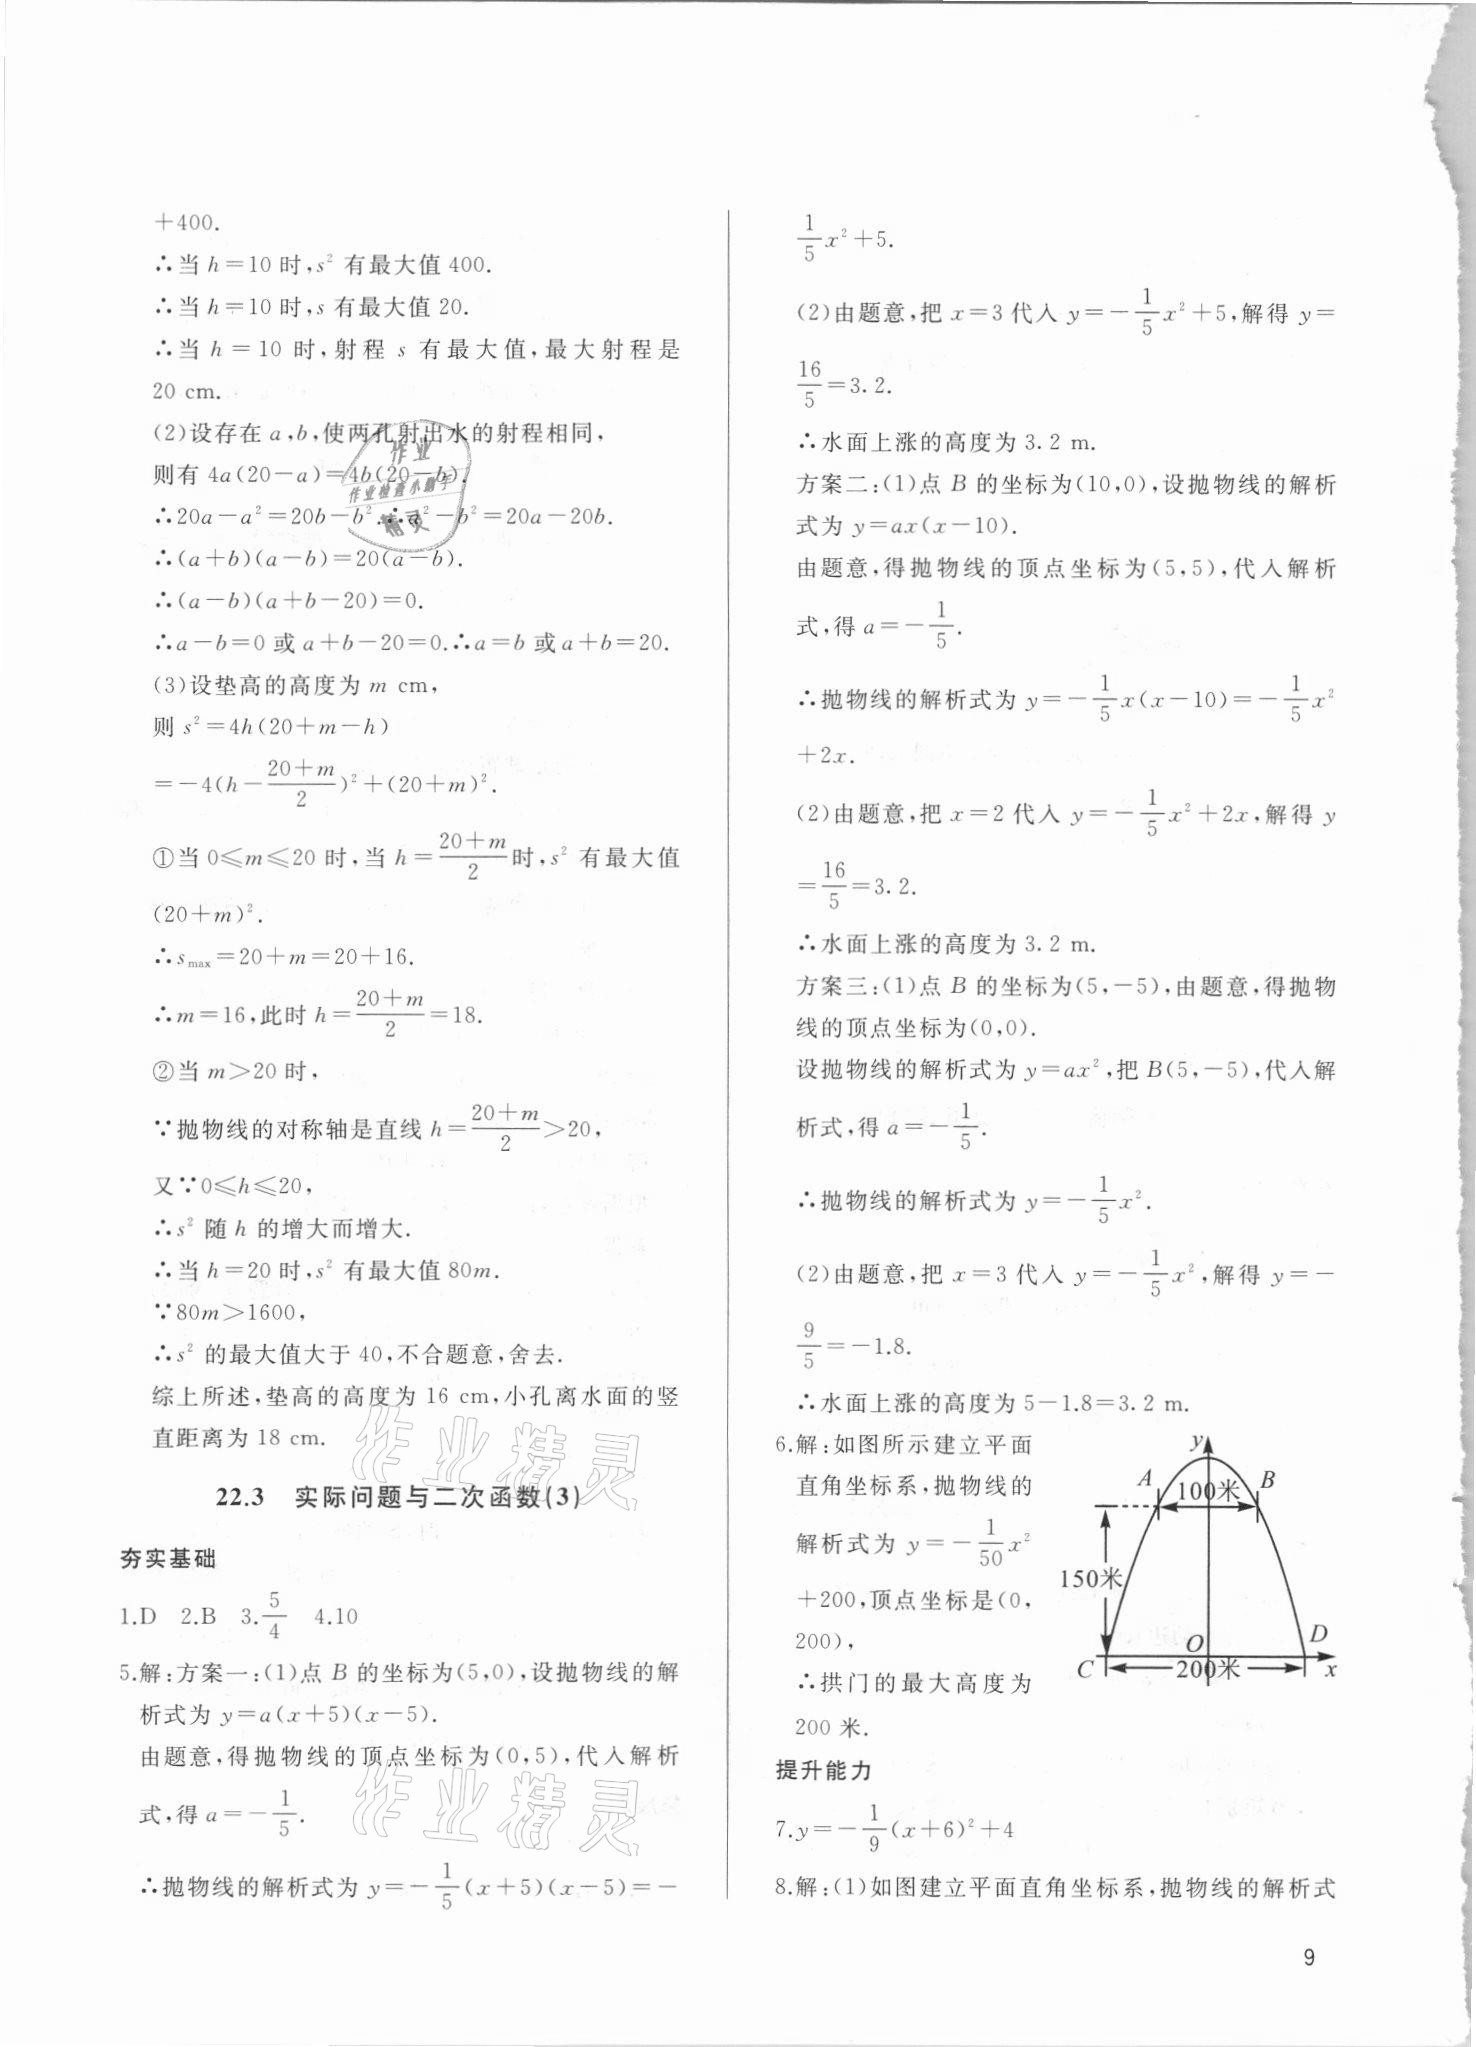 +400.
∴当 h=10 时,s² 有最大值 400.
∴当 h=10 时,s 有最大值 20.
∴当 h=10 时,射程 s 有最大值,最大射程是
20 cm.
(2)设存在 a,b,使两孔射出水的射程相同,
则有 4a(20-a)=4b(20-b).
∴20a-a²=20b-b².∴a²-b²=20a-20b.
∴(a+b)(a-b)=20(a-b).
∴(a-b)(a+b-20)=0.
∴a-b=0 或 a+b-20=0.∴a=b 或 a+b=20.
(3)设垫高的高度为 m cm,
则 s²=4h(20+m-h)
=-4(h-\frac{20+m}{2})²+(20+m)².
①当 0≤m≤20 时,当 h=\frac{20+m}{2}时,s² 有最大值
(20+m)².
∴s_{max}=20+m=20+16.
∴m=16,此时 h=\frac{20+m}{2}=18.
②当 m>20 时,
∵抛物线的对称轴是直线 h=\frac{20+m}{2}>20,
又∵0≤h≤20,
∴s² 随 h 的增大而增大.
∴当 h=20 时,s² 有最大值 80m.
∵80m>1600,
∴s² 的最大值大于 40,不合题意,舍去.
综上所述,垫高的高度为 16 cm,小孔离水面的竖
直距离为 18 cm.
22.3 实际问题与二次函数(3)
夯实基础
1.D 2.B 3.\frac{5}{4} 4.10
5.解:方案一:(1)点 B 的坐标为(5,0),设抛物线的解
析式为 y=a(x+5)(x-5).
由题意,得抛物线的顶点坐标为(0,5),代入解析
式,得 a=-\frac{1}{5}.
∴抛物线的解析式为 y=-\frac{1}{5}(x+5)(x-5)=-
\frac{1}{5}x²+5.
(2)由题意,把 x=3 代入 y=-\frac{1}{5}x²+5,解得 y=
\frac{16}{5}=3.2.
∴水面上涨的高度为 3.2 m.
方案二:(1)点 B 的坐标为(10,0),设抛物线的解析
式为 y=ax(x-10).
由题意,得抛物线的顶点坐标为(5,5),代入解析
式,得 a=-\frac{1}{5}.
∴抛物线的解析式为 y=-\frac{1}{5}x(x-10)=-\frac{1}{5}x²
+2x.
(2)由题意,把 x=2 代入 y=-\frac{1}{5}x²+2x,解得 y
=\frac{16}{5}=3.2.
∴水面上涨的高度为 3.2 m.
方案三:(1)点 B 的坐标为(5,-5),由题意,得抛物
线的顶点坐标为(0,0).
设抛物线的解析式为 y=ax²,把 B(5,-5),代入解
析式,得 a=-\frac{1}{5}.
∴抛物线的解析式为 y=-\frac{1}{5}x².
(2)由题意,把 x=3 代入 y=-\frac{1}{5}x²,解得 y=-
\frac{9}{5}=-1.8.
∴水面上涨的高度为 5-1.8=3.2 m.
6.解:如图所示建立平面
直角坐标系,抛物线的
解析式为 y=-\frac{1}{50}x²
+200,顶点坐标是(0,
200),
∴拱门的最大高度为
200 米.
y
A
B
100米
150米
O
D
C
200米
x
提升能力
7.y=-\frac{1}{9}(x+6)²+4
8.解:(1)如图建立平面直角坐标系,抛物线的解析式
9
作业
作业检查小助手
精灵
作业精灵
作业精灵